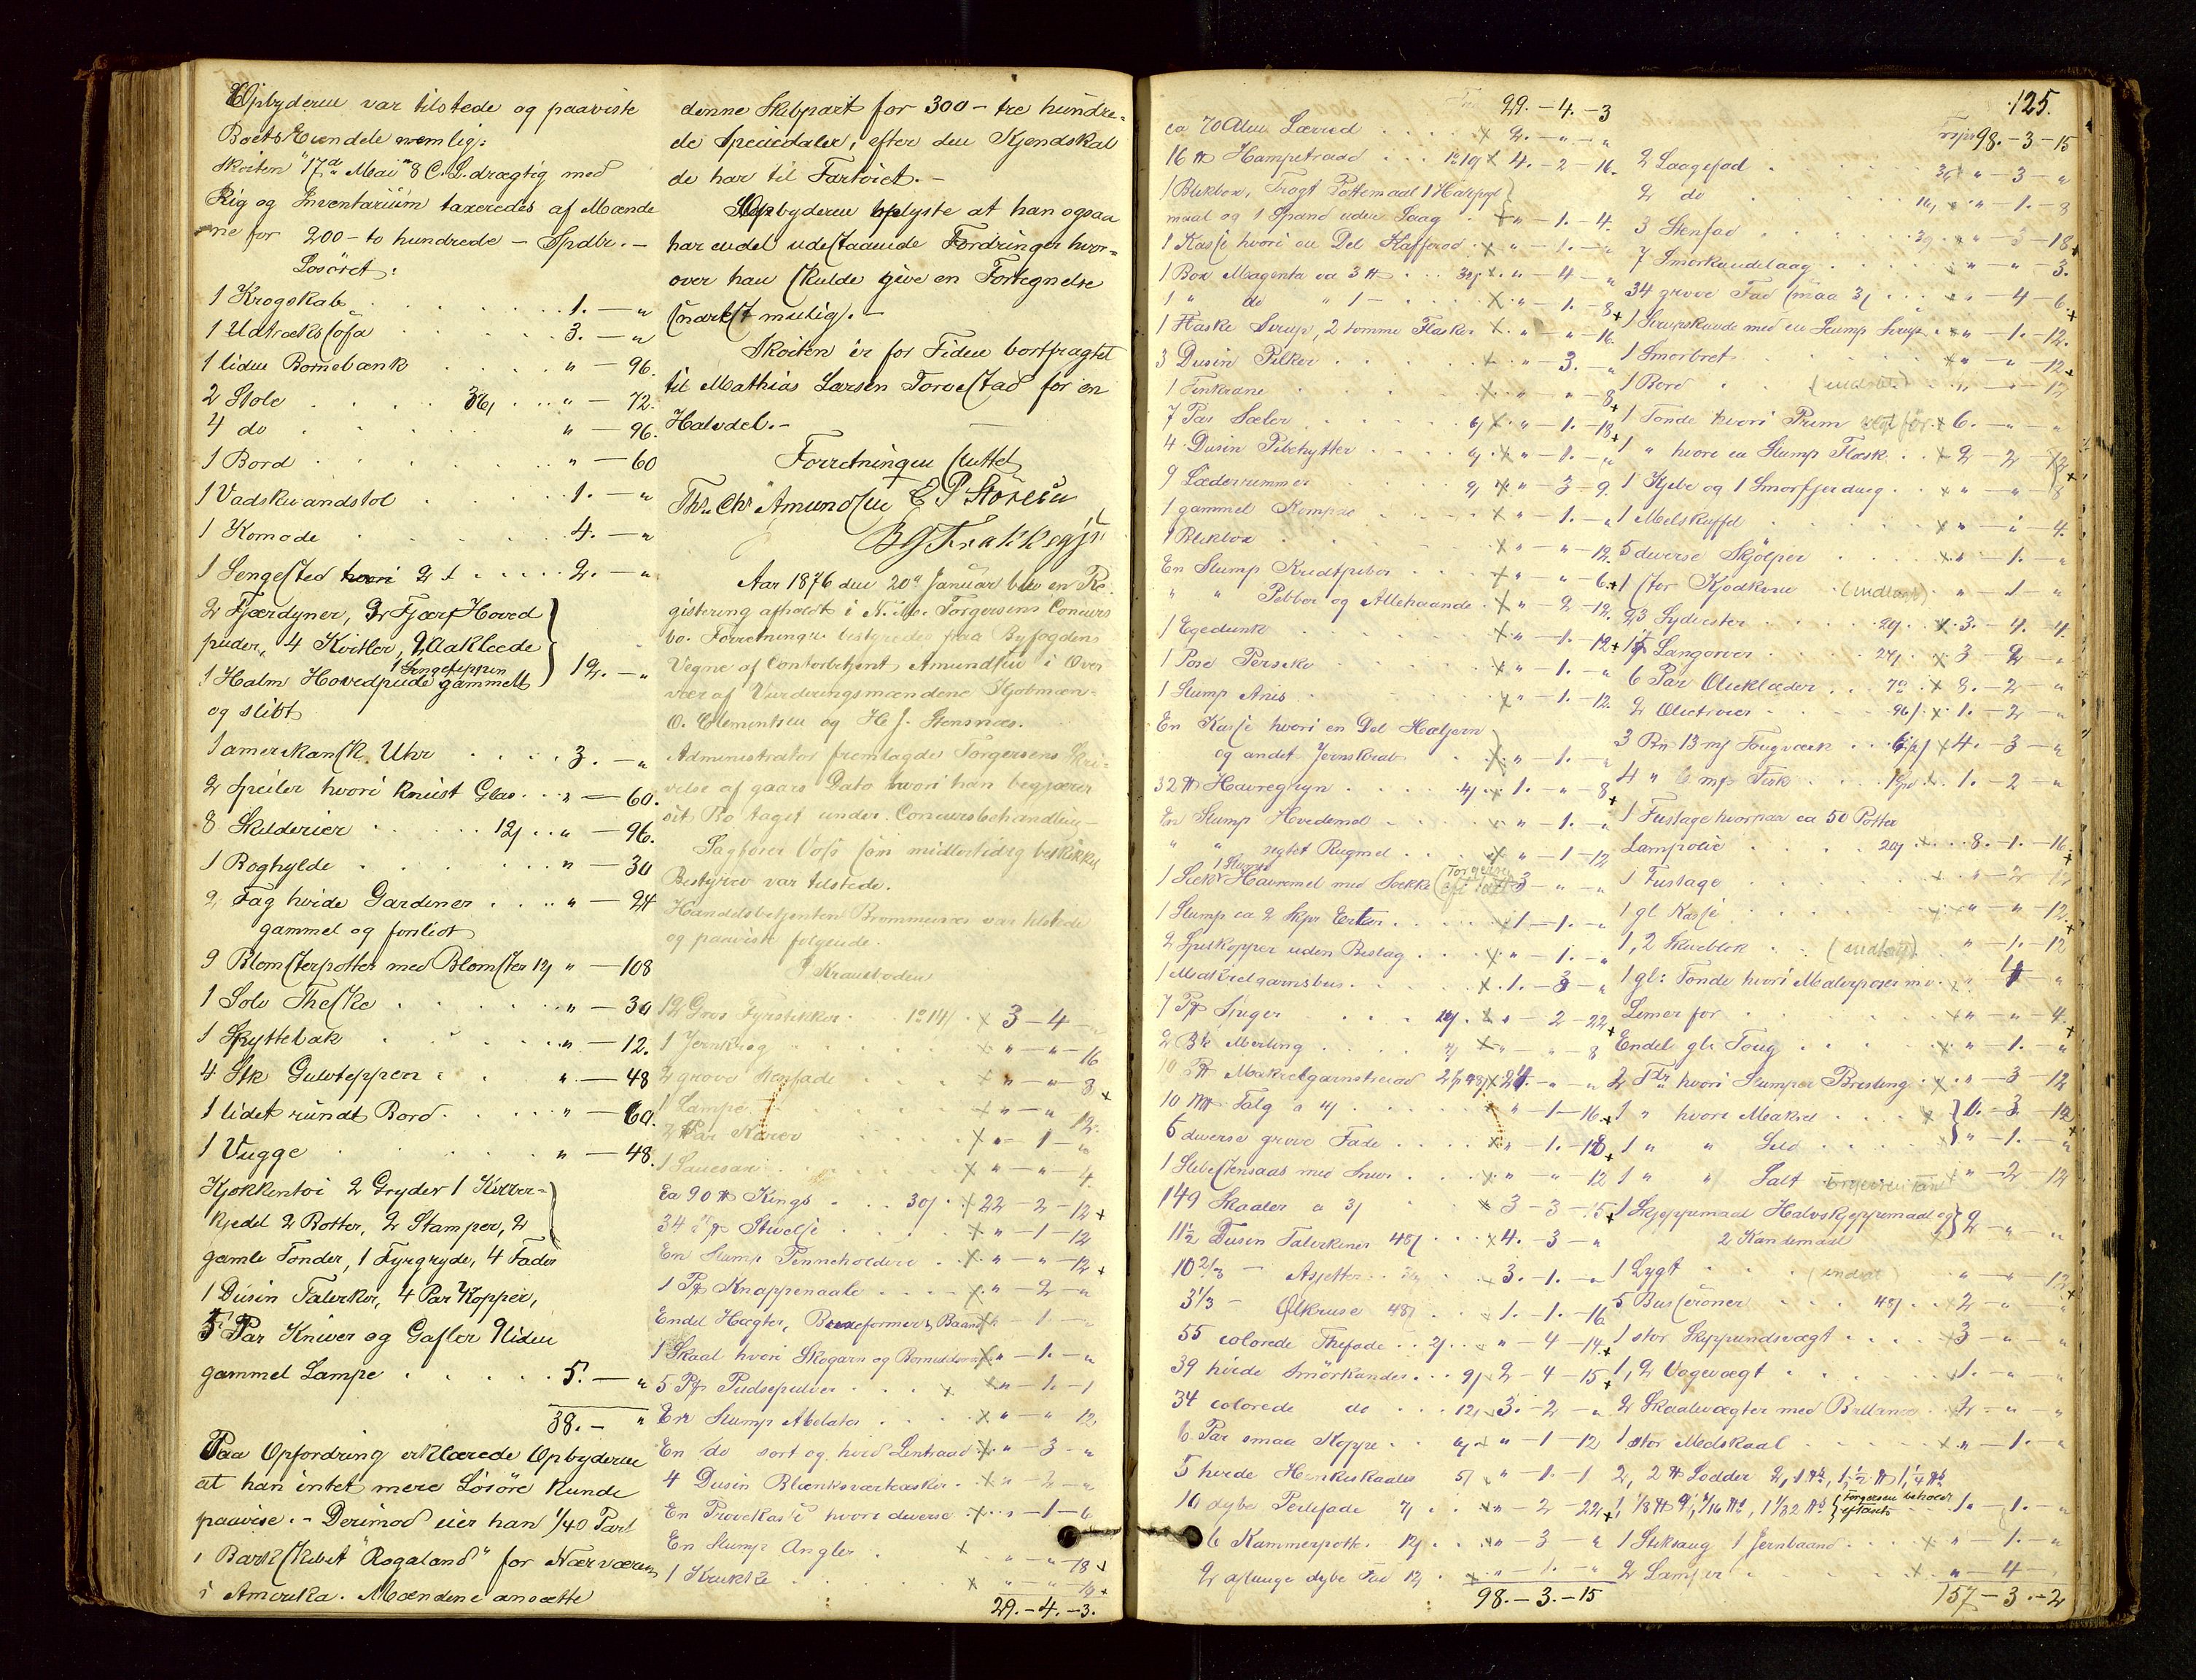 Opbyderen var tilstede og paaviste
Boets Eiendele nemlig:
Skoiten "17de Mai" 8 C.L. drægtig med
Rig og Inventarium taxeredes af Mænde
ne for 200 - to hundrede - Spdlr. -
Losöret:
1 Krogskab . . . 1. - "
1 Udtrækssofa . . . 3. - "
1 liden Bornebænk . . . " - 96.
2 Stole . . . 36/ . . " - 72.
4 do . . . " - 96.
1 Bord . . . " - 60
1 Vadskevandstol . . . 1. - "
1 Komode . . . 4. - "
1 Sengested hvori . . . 2. - "
2 Fjærdyner, 3 Fjær Hoved
puder, 4 Kvitler, 2 Aaklæde
1 Sengeteppen
1 Halm Hovedpude gammelt } 12. - "
og slidt
1 amerikansk Uhr . . . 3. - "
2 Speiler hvori knust Glas . . " - 60.
8 Skilderier . . . 12/ . . " - 96.
1 Boghylde . . . " - 30
2 Fag hvide Gardiner . . . " - 24
gammel og forslidt
9 Blomsterpotter med Blomster 12/ " - 108
1 Solv Theske . . . " - 30
1 Spyttebak . . . " - 12.
4 Stk Gulvteppen . . . " - 48
1 lidet rundt Bord . . . " - 60.
1 Vugge . . . " - 48.
Kjökkentoi 2 Gryder 1 Kobber=
kjedel 2 Botter, 2 Stamper, 2
gamle Tonder, 1 Fyrgryde, 4 Fader
1 Dusin Talerker, 4 Par Kopper,
5 Par Kniver og Gafler 1 liden
gammel Lampe . . . 5. - "
38. - "
Paa Opfordring erklærede Opbyderen
at han intet mere Lösöre kunde
paavise. - Derimod eier han 1/40 Part
i Barkskibet "Rogaland" for Nærværende
i Amerika. Mændene ansætte
denne Skibpart for 300 - tre hundre=
de Speciedaler, efter den Kjendskab
de har til Fartöiet. -
Opbyderen oplyste at han ogsaa
har endel udestaaende Fordringer hvor=
over han skulde give en Fortegnelse
snarest mulig. -
Skoiten er for Tiden bortfragtet
til Mathias Larsen Torvestad for en
Halvdel. -
Forretningen sluttet
Thr. Chr Amundsen E P Störein
B G Frakkagjr
Aar 1876 den 20de Januar blev en Re
gistering afholdt i N. M. Torgersens Concurs
bo. Forretningen bestyredes paa Byfogdens
Vegne af Contorbetjent Amundsen i Over
vær af Vurderingsmændene Kjobmæn-
O. Clementsen og H. J. Stensnæs.
Administrator fremlagde Torgersens Skri-
velse af gaars Dato hvori han begjærer
sit Bo taget under Concursbehandlin-
Sagförer Voss som midlertidig beskikket
Bestyrer var tilstede.
Handelsbetjenten Brommenæs var tilstede
og paaviste folgende.
I Kramboden
12 Gros Fyrstikker . . . x 3 - 4 - "
1 Jernkrog . . . x " - " - 16
2 grove Stenfade . . . x " - " - 8 +
1 Lampe . . . x " - " 12.
2 Par Karver . . . x " - 1 - "
1 Sauesax . . . x " - " - 4
ca 90 ℔ Kings . . . 30/ . x 22 - 2 - 12 +
34 ℔ Stivelse . . . x " - 1 - 12
En Slump Penneholdere . . x " - " - 12 +
1 Pk Knappenaale . . . x " - 2 - "
Endel Hægter, Buxeformer, Baand x " - 1 - "
1 Skaal hvori Skogarn og x " - 1. - "
5 Pk Pudsepulver . . . x " - 1 - 1
En Slump . . . x " - " 12
En do sort og hvid Lintraad x " - 3 - "
4 Dusin Blanksværtæsker . x " - 2 - "
En Provekasse hvori diverse . x " - 1 - 6
En Slump Angler . x " - " - 18 +
1 Krukke . . . x " - " - 14 +
29. - 4. - 3.
29. - 4. - 3
ca 70 Alen Lærred . . . x 2. - " - "
16 ℔ Hampetraad . . . x 4. - 2 - 16.
1 Blikbox, Tragt Pottemaal 1 Halvpgl
maal og 1 Spand uden Laag . x " - 1. - 4.
1 Kasse hvori en Del Kafferod . x " - 1. - "
1 Box Magenta ca 3 ℔ . . 32/ x " - 4 - "
1 " do " 1 - . . . x " - 1. - 8 +
1 Flaske Sirup, 2 tomme Flasker x " - " - 16.
3 Dusin Pilker . . . x " - 3. - "
1 Tinkrane . . . x " - " - 8 +
7 Par Sæler . . . 6/ x " - 1. - 18 +
4 Dusin Pibehytter . . . 6/ x " - 1. - "
9 Læderremmer . . . 9/ x " - 3 - 9.
1 gammel Kompas . . . x " - 1. - "
1 Blikbox . . . x " - " - 12.
En Slump Kridtpiber . . . x " - " - 6 +
" " Pebber og Allehaande . x " - 2 - 12.
1 Egedunk . . . x " - 1. - 12 +
1 Pose Persiko . . . x " - 1. - "
1 Slump Anis . . . x " - 1. - 12.
En Kasse hvori en Del Hæljern
og andet Jernskrab . . x " - 1. - "
32 ℔ Havregryn . . . 4/ x 1. - " - 8 +
En Slump Hvedemel . . . " - 1. - "
" " sigtet Rugmel . . . x " - 1 - 12
1 Sæk 1 Slump Havremel med Sække (Torgersen 3 - " - "
1 Slump ca 2 Skpr Erter . . . x 1. - 1. - "
2 Spilkopper uden Beslag . . . x " - 1. - "
1 Makrelgarnsbus . . . x 1. - 3 - "
7 ℔ Spiger . . . x " - 2 - 22 +
2 Bt Merling . . . x " - " - 8
10 ℔ Makrelgarnstraad 2/48 x 24. - " - "
10 ℔ Talg a 4/ . . . x " - 1 - 16 +
6 diverse grove Fade . . . x " - 1. - 18 +
1 Slibestensaas med Snur . . . x " - " - 12
149 Skaaler a 3/ . . . x 3 - 3 - 15 +
11 1/2 Dusin Talerkener 48/ . . . x 4. - 3 - "
10 2/3 - Asjetter . . . x 3. - 1. - "
3 1/3 - Ølkruse 48/ . . . 1. - 1. - 16
55 colorede Thefade . . 2/ . . " - 4 - 14 +
39 hvide Smörkander . . . 9/ 2 - 4 - 15 +
34 colorede do . . . 12/ x 3. - 2 - "
6 Par smaa Koppe . . . 6/ x " - 1 - 12
5 hvide Hankeskaaler 5/ x " - 1. - 1
10 dybe Pedefade 7/ . . x " - 2 - 22 +
6 Kammerpotte . 12/ . . . x " - 3 - "
2 aflange dybe Fad 12/ . . x " - 1. - "
98. - 3. - 15
125.
Trspr 98. - 3 - 15
2 Laagefad . . . 36/ " - 3 - "
2 do . . . 16/ " - 1. - 8
3 Stenfad . . . 30 . x " - 3 - 18 +
7 Smorkandelaag . . . " - " - 3.
34 grove Fad smaa 3/ . . . " - 4 - 6. +
1 Sirupskande med en Slump Sirup . x " - 1. - 12.
1 Smorbret . . . x " - " - 12 +
1 Bord . . (indstet) . . " - " - 12
1 Tonde hvori Prim . x 6. - " - "
1 " hvori en Slump Flæsk . . x 2 - 2 - 12 +
1 Kjibe og 1 Smorfjerding . . x " - " - 8
1 Melskuffel . . . x " - " - 4.
5 diverse Skjölper . . . x " - 1. - "
1 stor Kjodkrue . . . " - 1 - "
23 Sydvester . . . 20/ . x 3. - 4. 4.
15 Langorver . . . 24/ . x 3 - 2 - "
6 Par Olieklæder . . . x 8. - 2 - "
2 Olietroier . . . 96/ . x 1. - 2 - "
3 Bn 13 m/ Tougværk . . x 4. - 3 - "
4 " 6 m/s Tisk . . . 1. - 2 - "
1 Fustage hvorpaa ca 50 Potter
Lampolie . . . 20/ . . . 8. - 1. - 16 +
1 Fustage . . . x " - 2 - 12
1 gl Kasse . . . x " - " - 12. +
1, 2 Skueblik . . . " - 1. - 12
1 gl: Tonde hvori Malerposer m.v. x " 4 - "
Limer for . . . x " - " - 4. +
Endel gl: Toug . . . x " - 1. - "
2 Tdr hvori Slumper Brisling . x " - 3 - 12
1 " hvori Makrel . . . x } 6. - 3. - 12 +
1 " " Sild . . . x } " - 1. - "
1 " " Salt " - 2 - 12
1 Skjeppemaal Halvskjeppemaal og } 2 - " - "
2 Kandemaal
1 Lygt . . . " - " - 12
5 Busseroner . . . 48/ . . x 2 - " "
1 stor Skippundsvægt . . . 3 - " - "
1, 2 Vogevægt . . . x 1. - " - "
2 Skaalevægter med Ballance . x 2 - " - "
1 stor Medskaal . . . x " - 1. - "
2, 2 ℔ Lodder 2, 1 ℔, 1, 1/2 ℔ 1, 1/4 ℔
1, 1/8 ℔ 9, 1/16 ℔, 1 1/32 ℔ { Torgersen beholdt eftTaxt . 1. - 1. - "
1 Stiksaug 1 Jernbaand . . . x " - 1. - "
2 Lamper . . . x " - 4 - "
157 - 3. - 2